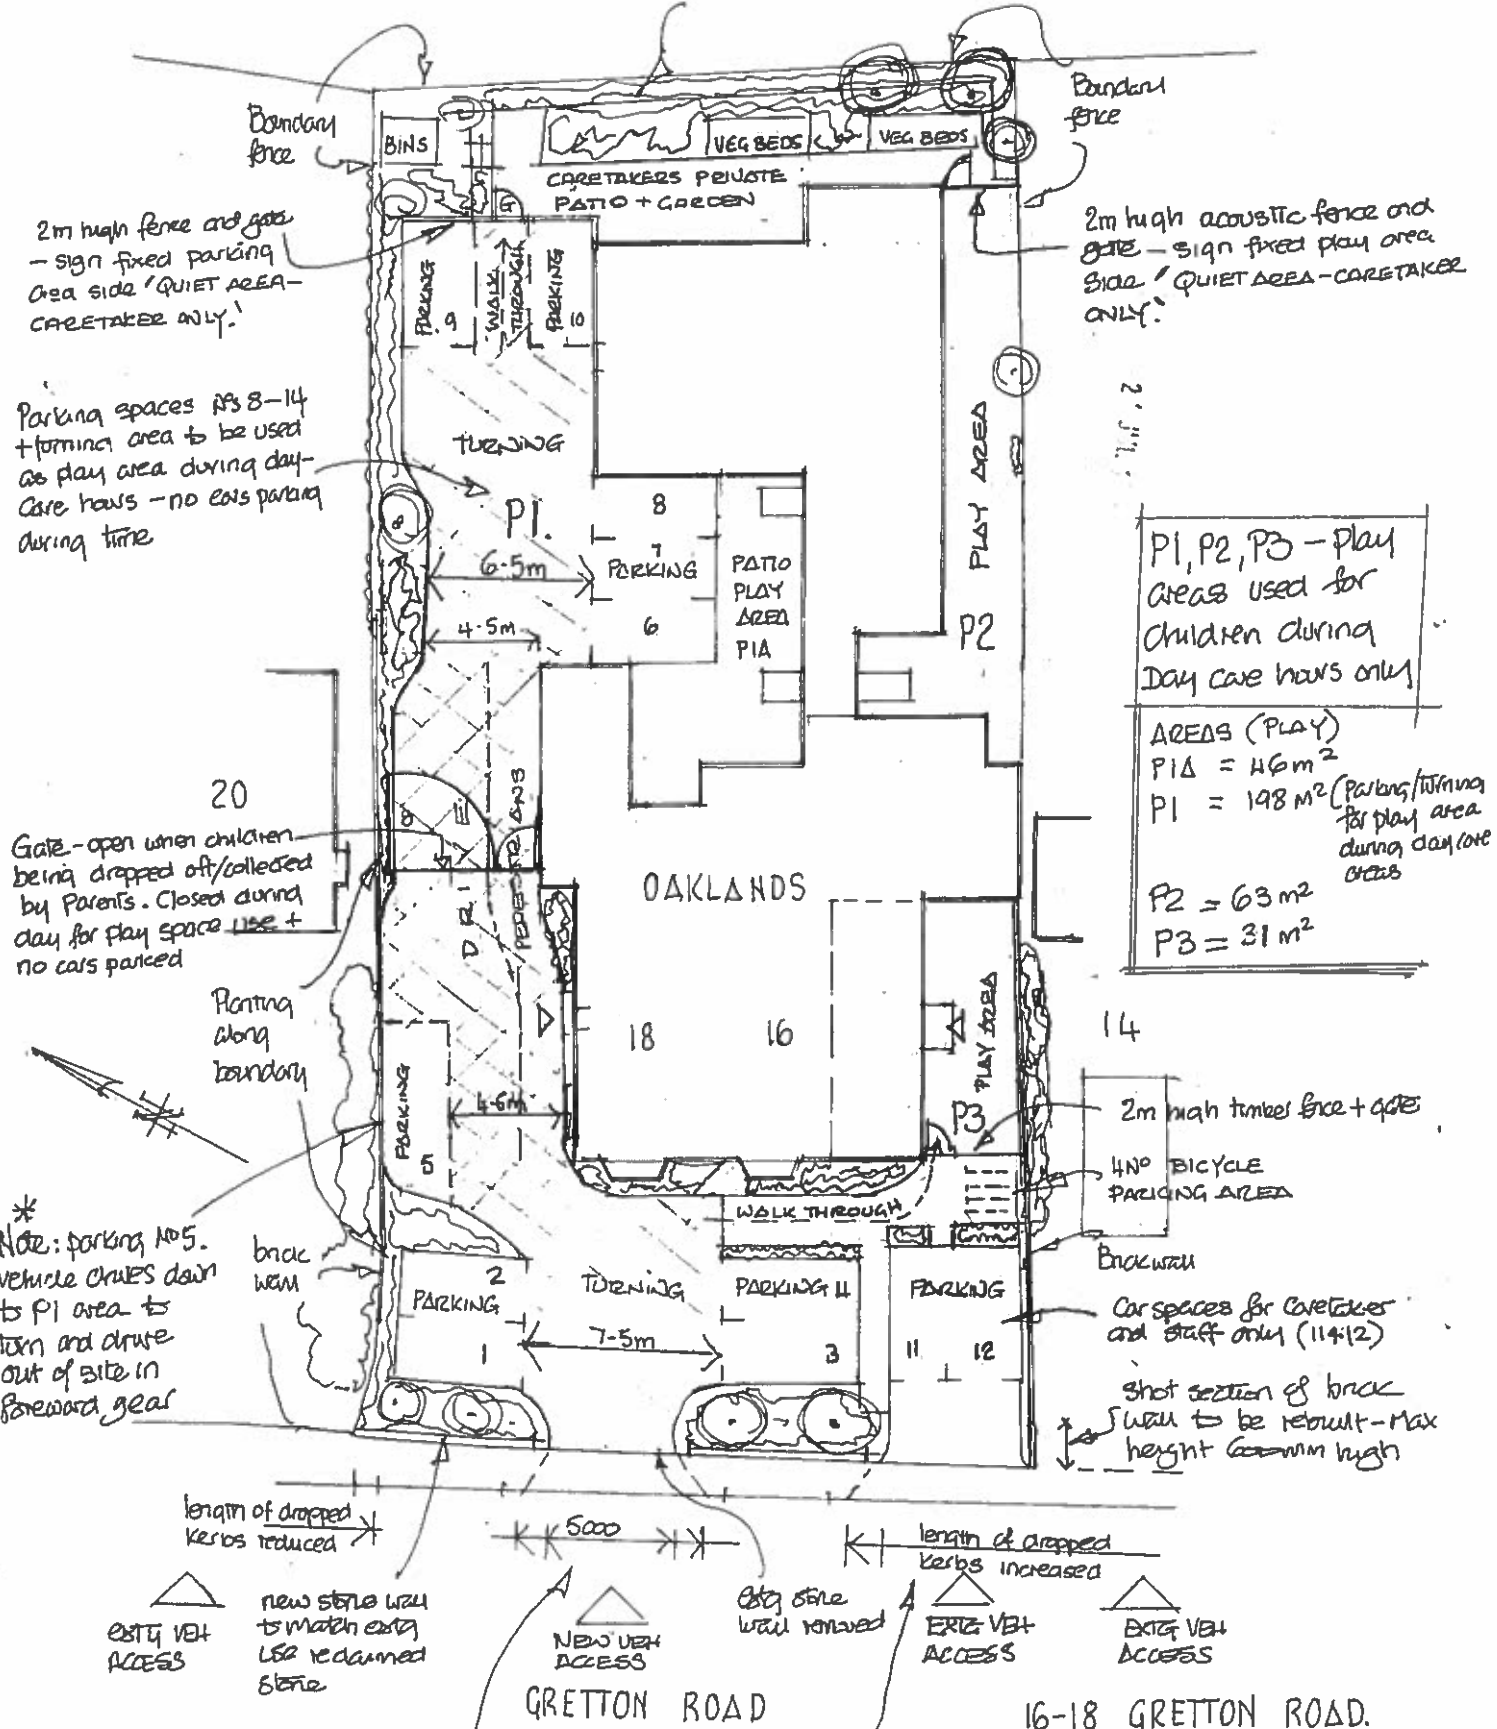 Boundary
fence
BINS
VEG BEDS
VEG BEDS
Boundary
fence
CARETAKERS PRIVATE
PATIO + GARDEN
G
2m high fence and gate
- sign fixed parking
area side 'QUIET AREA-
CARETAKER ONLY.'
2m high acoustic fence and
gate - sign fixed play area
side 'QUIET AREA-CARETAKER
ONLY.'
PARKING
9
WALK
THROUGH
PARKING
10
Parking spaces Nºs 8-14
+ turning area to be used
as play area during day-
care hours - no cars parking
during time
TURNING
P1.
6.5m
4.5m
8
7
PARKING
6
PATIO
PLAY
AREA
P1A
PLAY AREA
P2
P1, P2, P3 - Play
areas used for
children during
Day care hours only
AREAS (PLAY)
P1A = 46m²
P1 = 198 M² (Parking/turning
for play area
during daycare
areas
P2 = 63m²
P3 = 31m²
20
Gate - open when children
being dropped off/collected
by Parents. Closed during
day for play space use +
no cars parked
PEDESTRIANS
OAKLANDS
18
16
14
Planting
along
boundary
PARKING
5
4.6m
PLAY AREA
P3
2m high timber fence + gate
4Nº BICYCLE
PARKING AREA
WALK THROUGH
Brick wall
*
Note: parking Nº5.
vehicle drives down
to P1 area to
turn and drive
out of site in
foreward gear
brick
wall
2
PARKING
1
TURNING
7.5m
PARKING 4
3
PARKING
11
12
Car spaces for Caretaker
and staff only (11+12)
Shot section of brick
wall to be rebuilt - Max
height 600mm high
length of dropped
kerbs reduced
5000
length of dropped
kerbs increased
EXTG VEH
ACCESS
new stone wall
to match extg
use reclaimed
stone
NEW VEH
ACCESS
extg stone
wall removed
EXTG VEH
ACCESS
EXTG VEH
ACCESS
GRETTON ROAD
16-18 GRETTON ROAD.